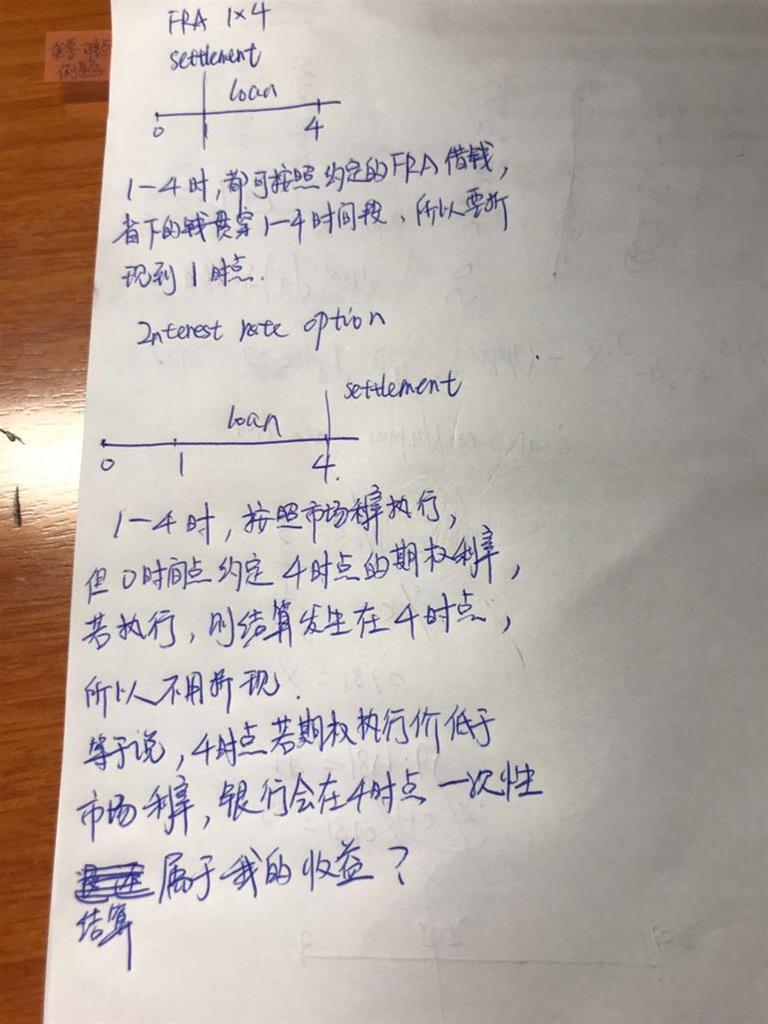 FRA 1×4
settlement
loan
0 1 4
1-4时,都可按照约定的FRA借钱,
省下的钱贯穿1-4时间段、所以要折
现到1时点.
Interest rate option
settlement
loan
0 1 4.
1-4时,按照市场利率执行,
但0时间点约定4时点的期权利率,
若执行,则结算发生在4时点,
所以不用折现.
等于说,4时点若期权执行价低于
市场利率,银行会在4时点一次性
属于我的收益?
结算